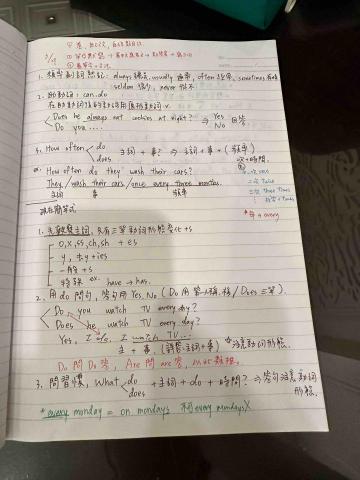 1. 頻率副詞 always 總是, usually 通常, often 經常, sometimes 有時
seldom 很少, never 從不
2. 助動詞: can, do
在助動詞後的動詞用原形動詞 v.
Does he always eat cookies at night? ⇒ Yes
Do you .... No 回答
3. How often do
does 主詞 + 事? ⇒ 主詞 + 事 + (頻率)
次+時間
How often do they wash their cars?
They wash their cars once every three months.
主詞 事 頻率
一次 once
二次 twice
三次 three times
*每 = every
現在簡單式
1. 先觀察主詞, 只有三單動詞形態變化+s
o, x, ss, ch, sh + es
y, 去y+ies
一般+s
特殊 ex. have → has.
2. 用do問句, 答句用 Yes, No (Do 用第一人稱、/Does 三單).
Do you watch TV every day?
Does he watch TV every day?
Yes, I do, I watch TV ...
主 + 事. (詳答: 主詞+事) *注意動詞形態.
Do 問 Do 答, Are 問 are 答, 以此類推.
3. 問習慣, What do
does + 主詞 + do + 時間? ⇒ 答句注意動詞
形態.
* every monday = on mondays 不可 every mondays X